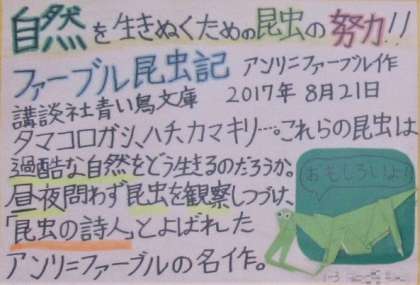 自然を生きぬくための昆虫の努力!!
ファーブル昆虫記 アンリ=ファーブル作
講談社青い鳥文庫 2017年8月21日
タマコロガシ、ハチ、カマキリ…。これらの昆虫は
過酷な自然をどう生きるのだろうか。
昼夜問わず昆虫を観察しつづけ、
「昆虫の詩人」とよばれた
アンリ=ファーブルの名作。
おもしろいよ!!